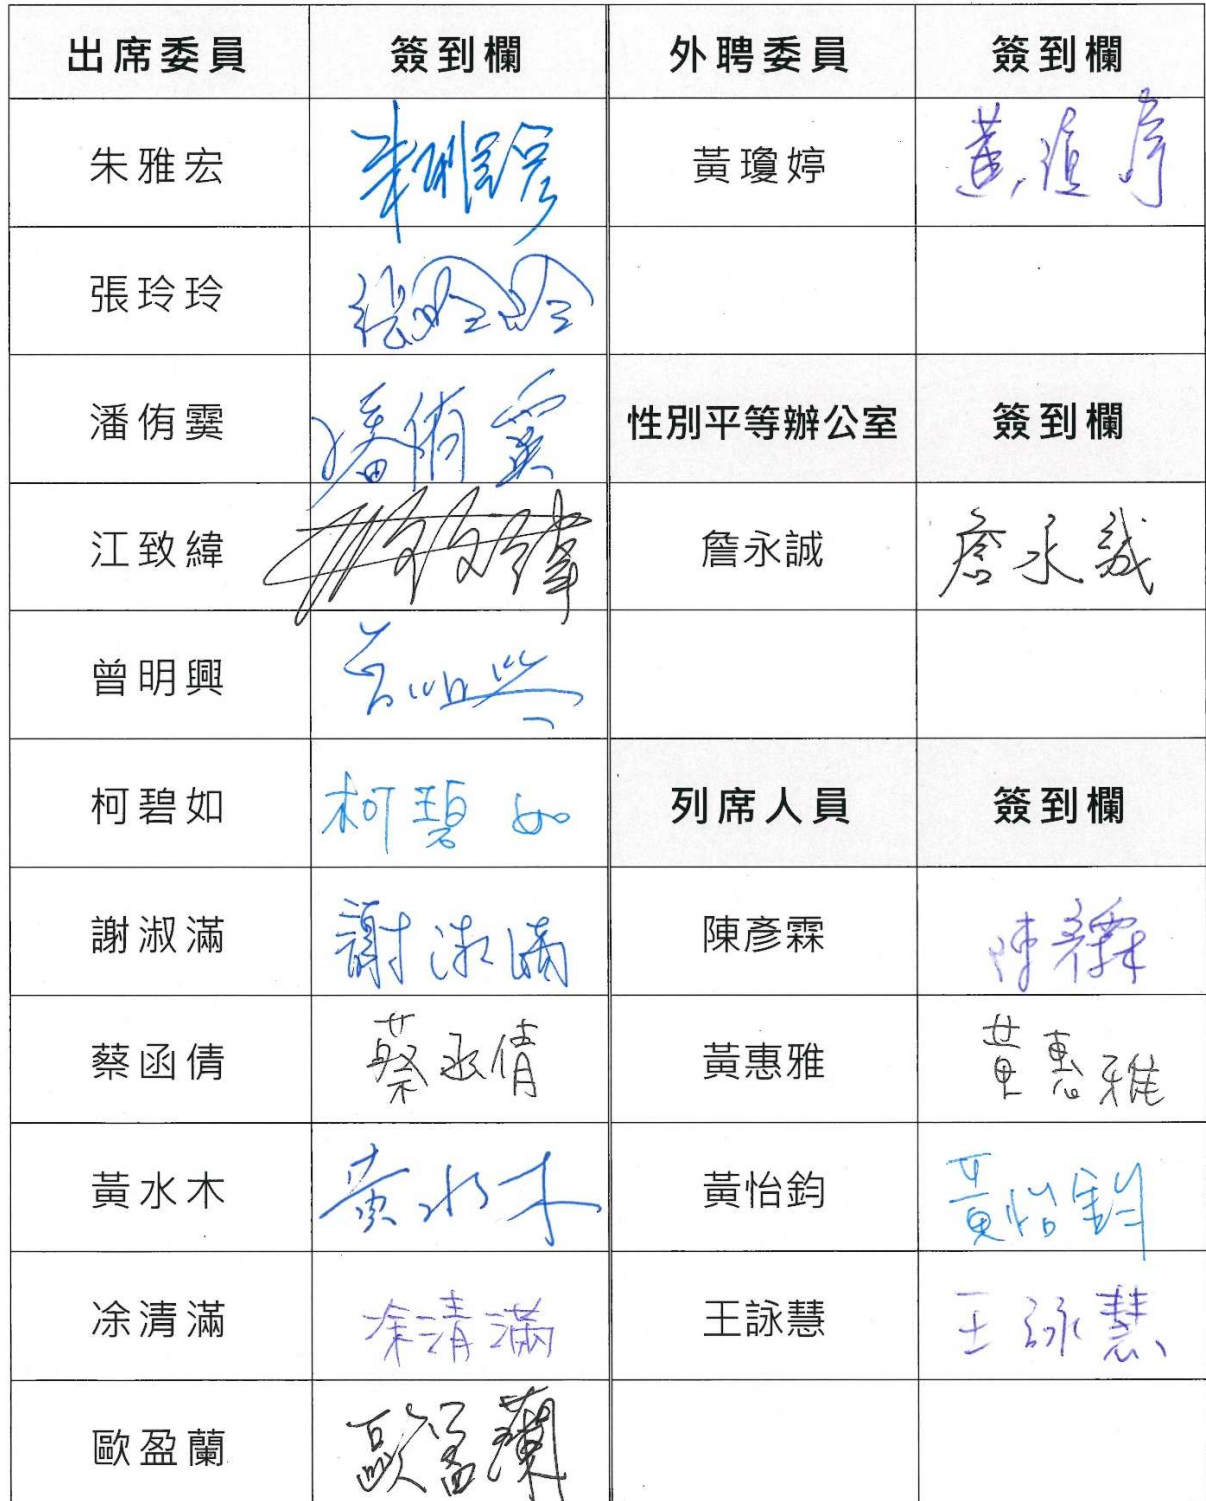 出席委員 簽到欄 外聘委員 簽到欄
朱雅宏 黃瓊婷 黃瓊婷
張玲玲 張玲玲
潘侑霙 潘侑霙 性別平等辦公室 簽到欄
江致緯 江致緯 詹永誠 詹永誠
曾明興 曾明興
柯碧如 柯碧如 列席人員 簽到欄
謝淑滿 謝淑滿 陳彥霖 陳彥霖
蔡函倩 蔡函倩 黃惠雅 黃惠雅
黃水木 黃水木 黃怡鈞 黃怡鈞
凃清滿 凃清滿 王詠慧 王詠慧
歐盈蘭 歐盈蘭